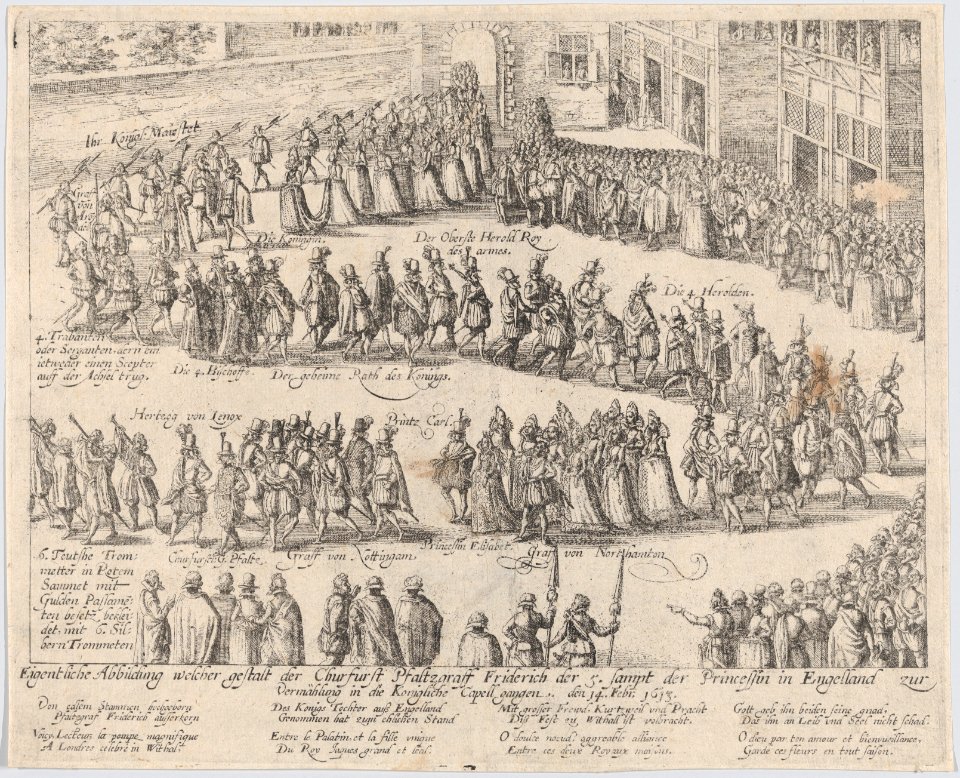 Ihr Königl. Maiestet
Graff
von
Die Königin.
Der Oberste Herold Roy
des armes.
Die 4. Herolden.
4. Trabanten
oder Servanten, dern ein
ietweder einen Scepter
auff der Achsel trug.
Die 4. Bischoffe.
Der geheime Rath des Königs.
Hertzog von Lenox
Printz Carl.
6. Teutsche Trom¬
metter in Rotem
Sammet mit
Gulden Passame¬
ten besetz beklei¬
det, mit 6. Sil¬
bern Trommeten
Churfürst G. Pfaltz.
Graff von Nottingam.
Princessin Elisabet.
Graff von Northamton
Eigentliche Abbildung welcher gestalt der Churfurst Pfaltzgraff Friderich der 5. sampt der Princessin in Engelland zur
Vermählung in die Königliche Capell gangen. den 14. Febr. 1613.
Von edlem Stammen hochgeborn
Pfaltzgraf Friderich außerkorn
Des Königs Tochter auß Engelland
Genommen hat zum ehlichen Stand
Mit grosser Frewd, Kurtzweil vnd Pracht
Diß Fest zu Withall ist volbracht.
Gott geb ihn beiden seine gnad,
Das ihn an Leib vnd Seel nicht schad.
Voicy Lecteur la pompe magnifique
A Londres celebré in Withal.
Entre le Palatin et la fille vnique
Du Roy Jaques grand et leal.
O doulce noud, aggreable alliance
Entre ces deux Royaux maisons.
O dieu par ton amour et bienvueillance,
Garde ces fleurs en tout saison.